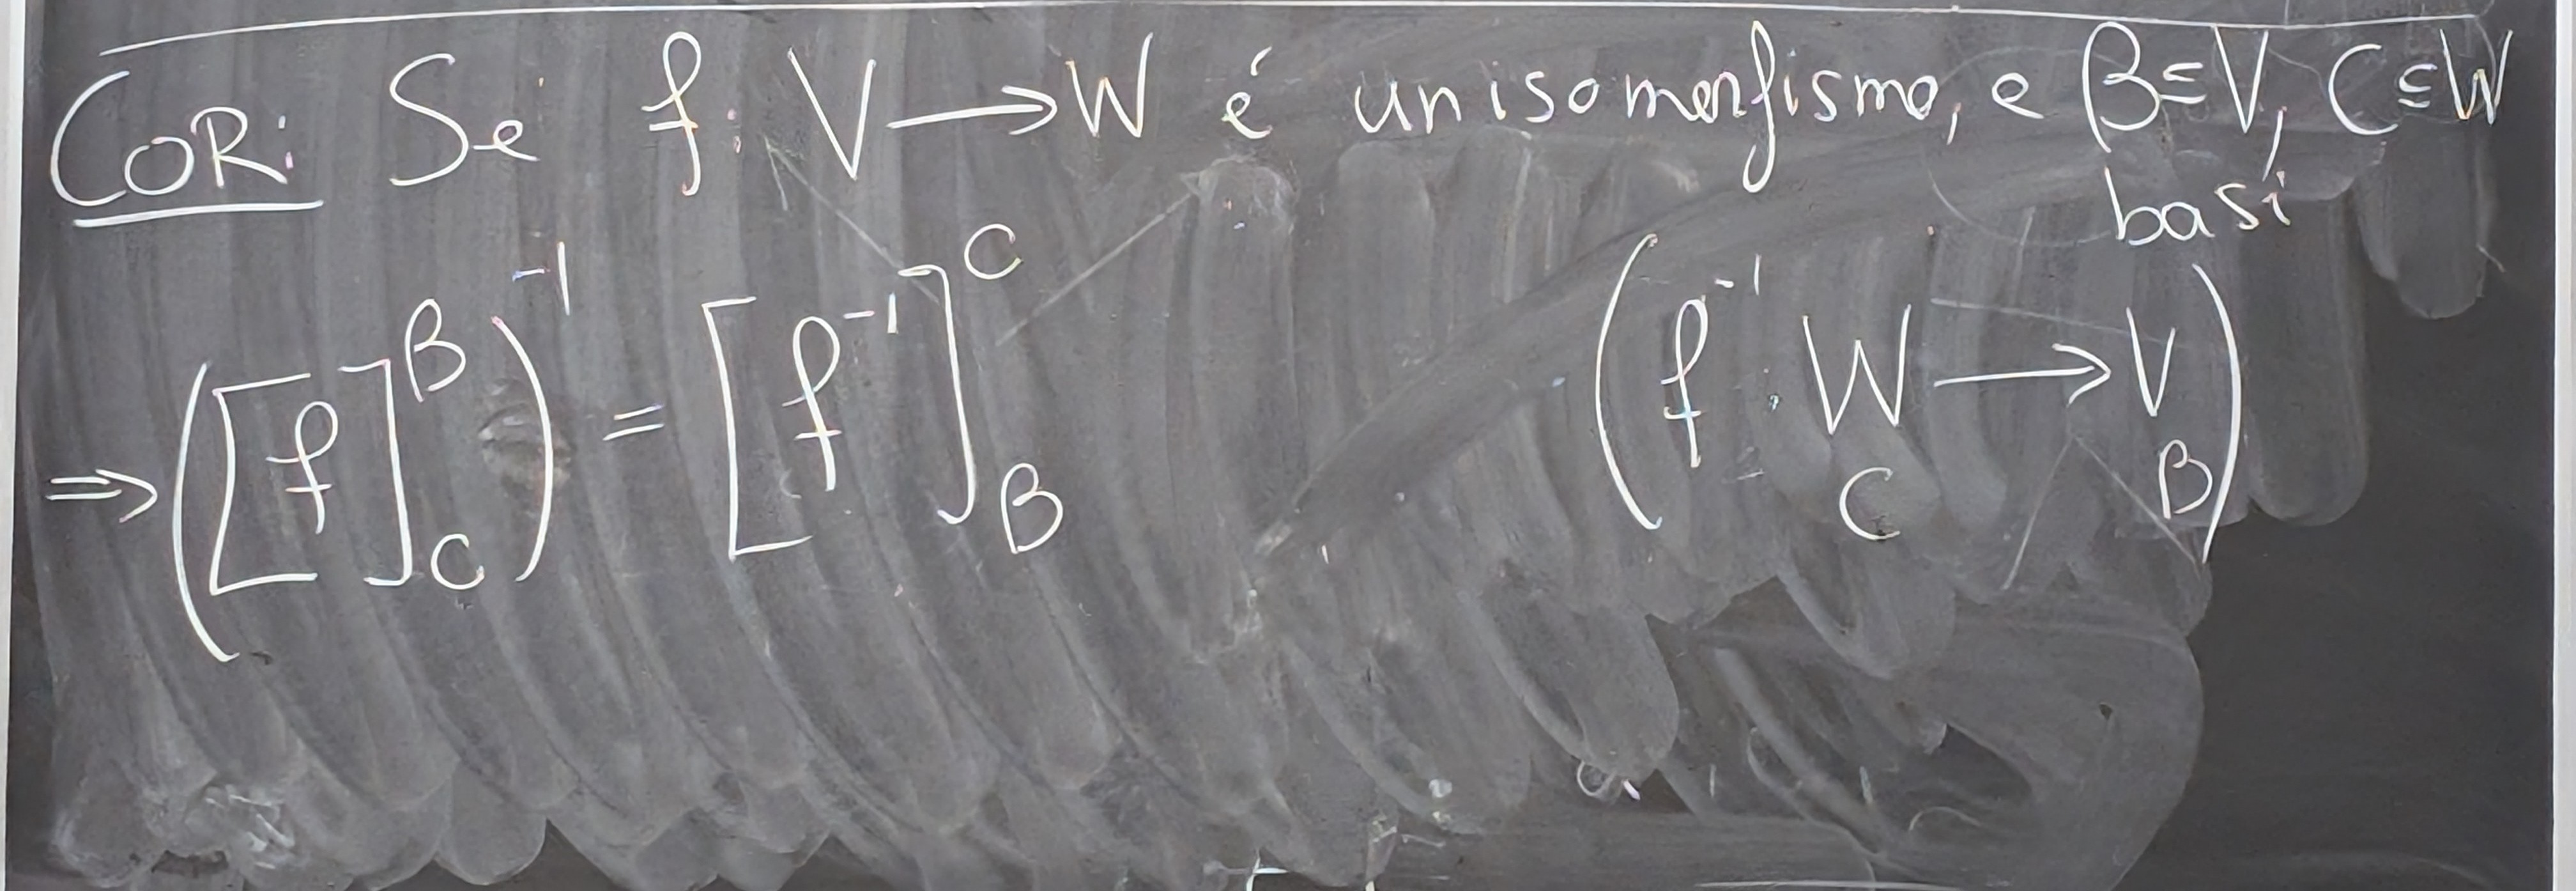 COR: Se f: V → W é un isomorfismo, e B ⊆ V, C ⊆ W
basi
⇒ ([f]^B_C)^-1 = [f^-1]^C_B (f^-1: W → V)
C B